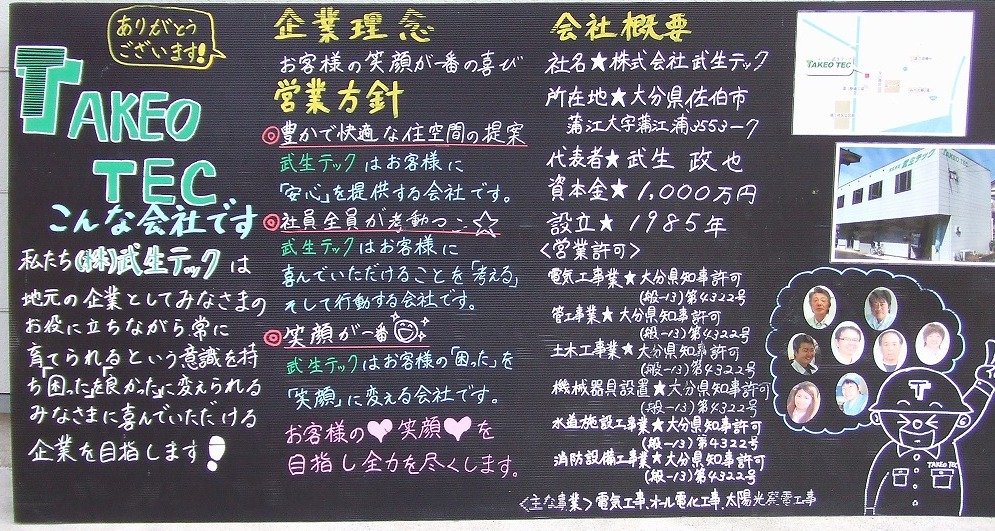 ありがとう
ございます!
TAKEO
TEC
こんな会社です
私たち(株)武生テックは
地元の企業としてみなさまの
お役に立ちながら常に
育てられるという意識を持
ち「困った」を「良かった」に変えられる
みなさまに喜んでいただける
企業を目指します!
企業理念
お客様の笑顔が一番の喜び
営業方針
◎豊かで快適な住空間の提案
武生テックはお客様に
「安心」を提供する会社です。
◎社員全員が考動マン☆
武生テックはお客様に
喜んでいただけることを「考える」
そして行動する会社です。
◎笑顔が一番
武生テックはお客様の「困った」を
「笑顔」に変える会社です。
お客様の♥笑顔♥を
目指し全力を尽くします。
会社概要
社名★株式会社武生テック
所在地★大分県佐伯市
蒲江大字蒲江浦3553-7
代表者★武生 政也
資本金★1,000万円
設立★1985年
<営業許可>
電気工事業★大分県知事許可
(般-13)第4322号
管工事業★大分県知事許可
(般-13)第4322号
土木工事業★大分県知事許可
(般-13)第4322号
機械器具設置★大分県知事許可
(般-13)第4322号
水道施設工事業★大分県知事許可
(般-13)第4322号
消防設備工事業★大分県知事許可
(般-13)第4322号
<主な事業>電気工事、オール電化工事、太陽光発電工事
武生テック
TAKEO TEC
武生テック TAKEO TEC
T
TAKEO TEC